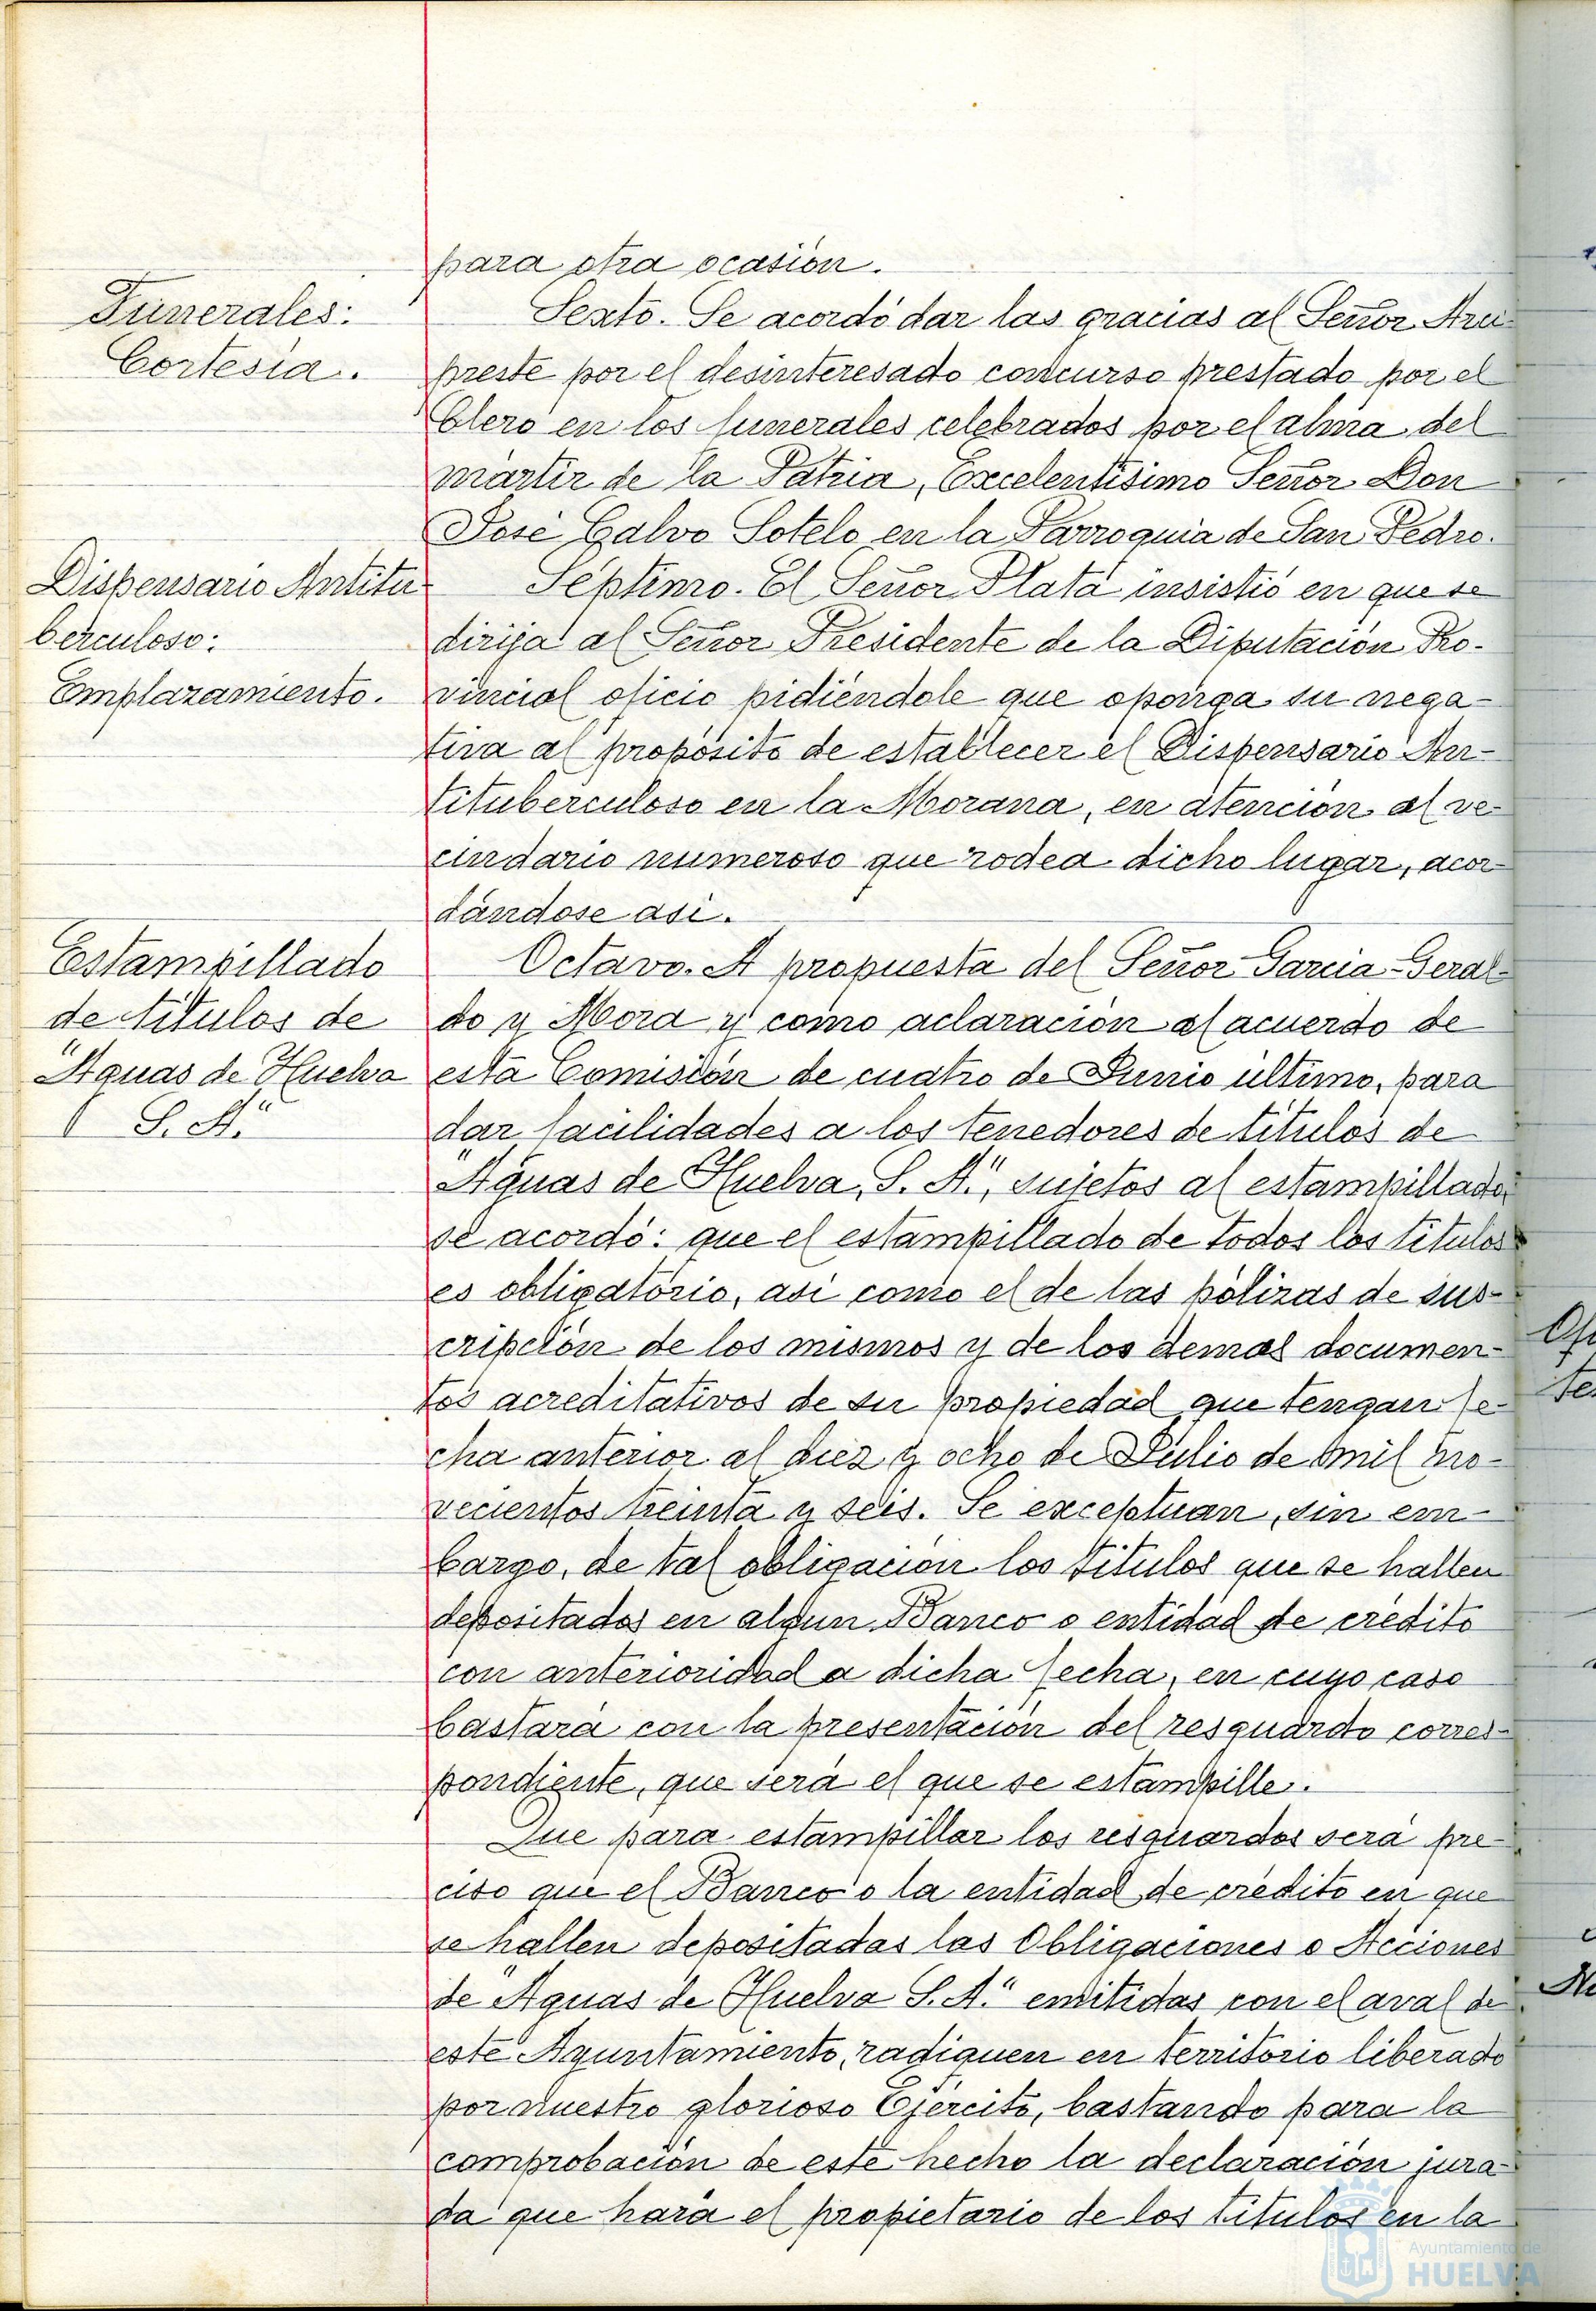 para otra ocasión.
Funerales:
Cortesía.
Sexto. Se acordó dar las gracias al Señor Arci-
preste por el desinteresado concurso prestado por el
Clero en los funerales celebrados por el alma del
mártir de la Patria, Excelentísimo Señor Don
José Calvo Sotelo en la Parroquia de San Pedro.
Dispensario Antitu-
berculoso:
Emplazamiento.
Séptimo. El Señor Plata insistió en que se
dirija al Señor Presidente de la Diputación Pro-
vincial oficio pidiéndole que oponga su nega-
tiva al propósito de establecer el Dispensario An-
tituberculoso en la Morana, en atención al ve-
cindario numeroso que rodea dicho lugar, acor-
dándose así.
Estampillado
de títulos de
"Aguas de Huelva
S. A."
Octavo. A propuesta del Señor García-Geral-
do y Mora y como aclaración al acuerdo de
esta Comisión de cuatro de Junio último, para
dar facilidades a los tenedores de títulos de
"Aguas de Huelva, S. A.", sujetos al estampillado,
se acordó: que el estampillado de todos los títulos
es obligatorio, así como el de las pólizas de sus-
cripción de los mismos y de los demás documen-
tos acreditativos de su propiedad que tengan fe-
cha anterior al diez y ocho de Julio de mil no-
vecientos treinta y seis. Se exceptuan, sin em-
bargo, de tal obligación los títulos que se hallen
depositados en algun Banco o entidad de crédito
con anterioridad a dicha fecha, en cuyo caso
bastará con la presentación del resguardo corres-
pondiente, que será el que se estampille.
Que para estampillar los resguardos será pre-
ciso que el Banco o la entidad de crédito en que
se hallen depositadas las Obligaciones o Acciones
de "Aguas de Huelva S. A." emitidas con el aval de
este Ayuntamiento, radiquen en territorio liberado
por nuestro glorioso Ejército, bastando para la
comprobación de este hecho la declaración jura-
da que hará el propietario de los títulos en la
Ayuntamiento de
HUELVA